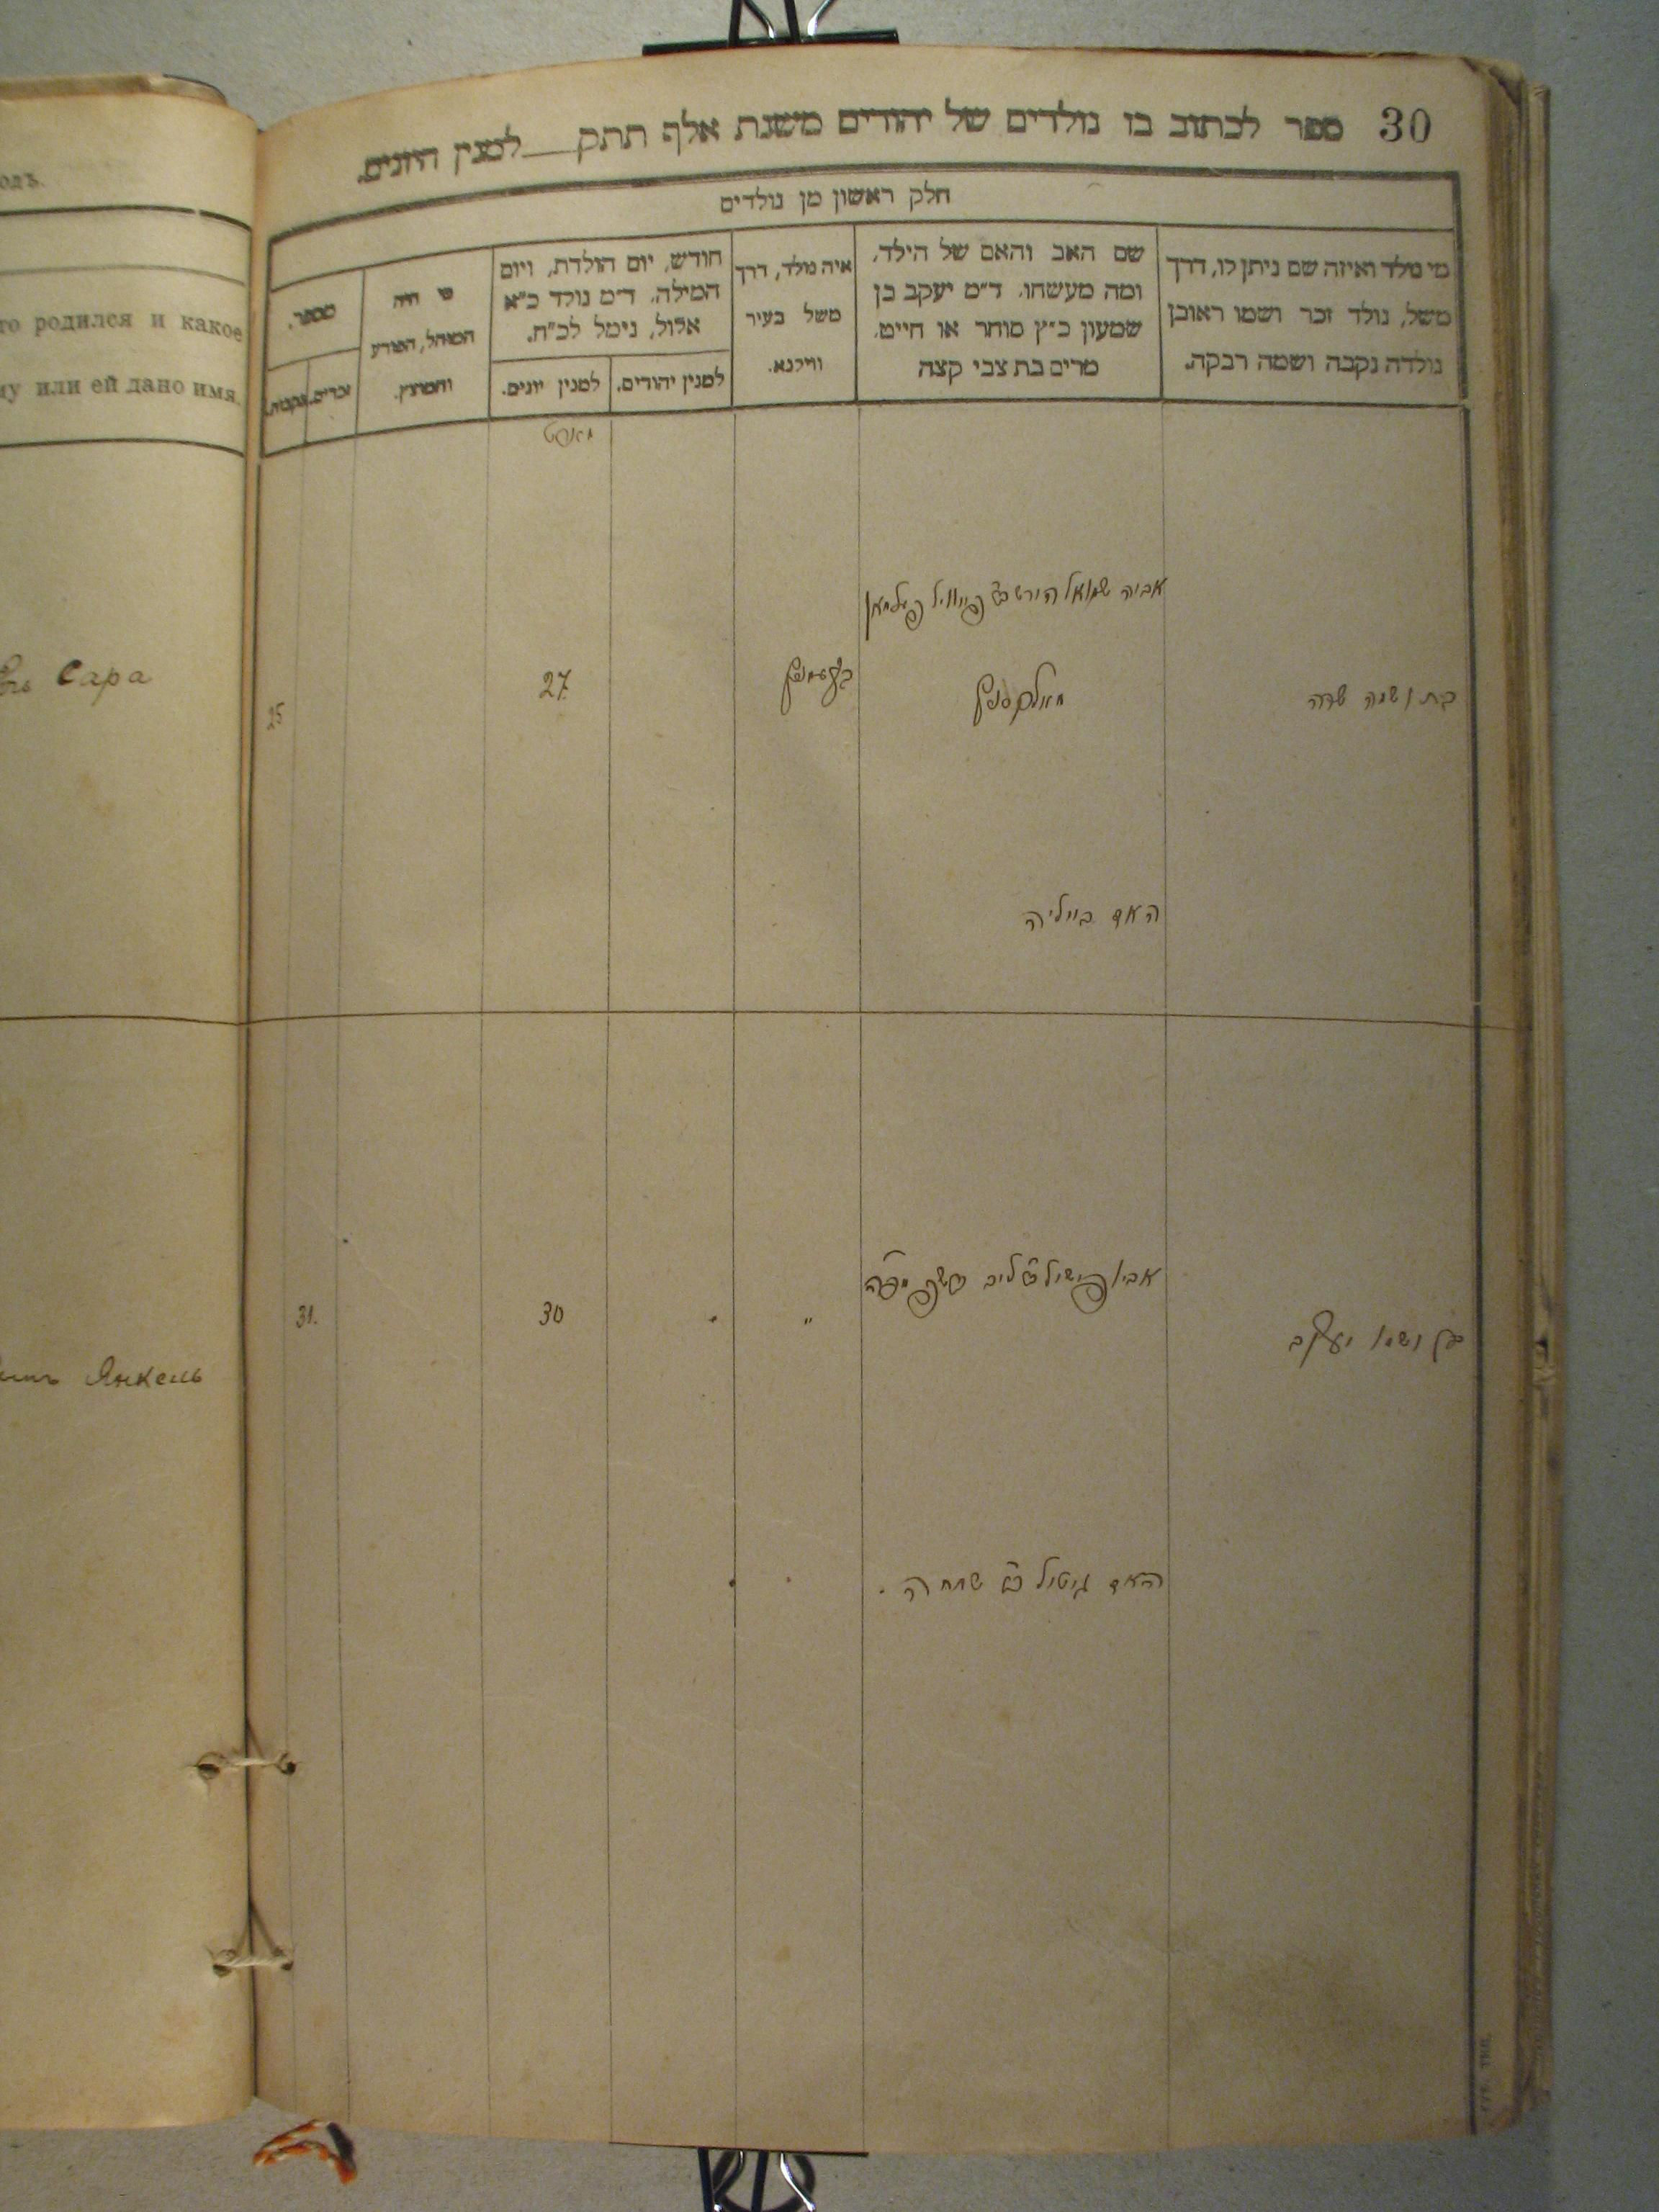 30 ספר לכתוב בו נולדים של יהודים משנת אלף תתק למנין היונים.
חלק ראשון מן נולדים
מי נולד ואיזה שם ניתן לו, דרך
משל, נולד זכר ושמו ראובן
נולדה נקבה ושמה רבקה.
שם האב והאם של הילד,
ומה מעשהו. ד״מ יעקב בן
שמעון כ״ץ סוחר או חייט.
מרים בת צבי קצה
איה נולד, דרך
משל בעיר
ווילנא.
חודש, יום הולדת, ויום
המילה. ד״מ נולד כ״א
אלול, נימל לכ״ח.
למנין יהודים.
למנין יונים.
מי היה
המוהל, הפורע
והמוצץ.
מספר.
זכרים.
נקבות.
בת ושמה שרה
אביה שמואל הירש
27
25
האם ביילה
בן ושמו יעקב
אביו
"
30
31.
האם גיטל
одъ.
то родился и какое
му или ей дано имя.
Сара
Янкель